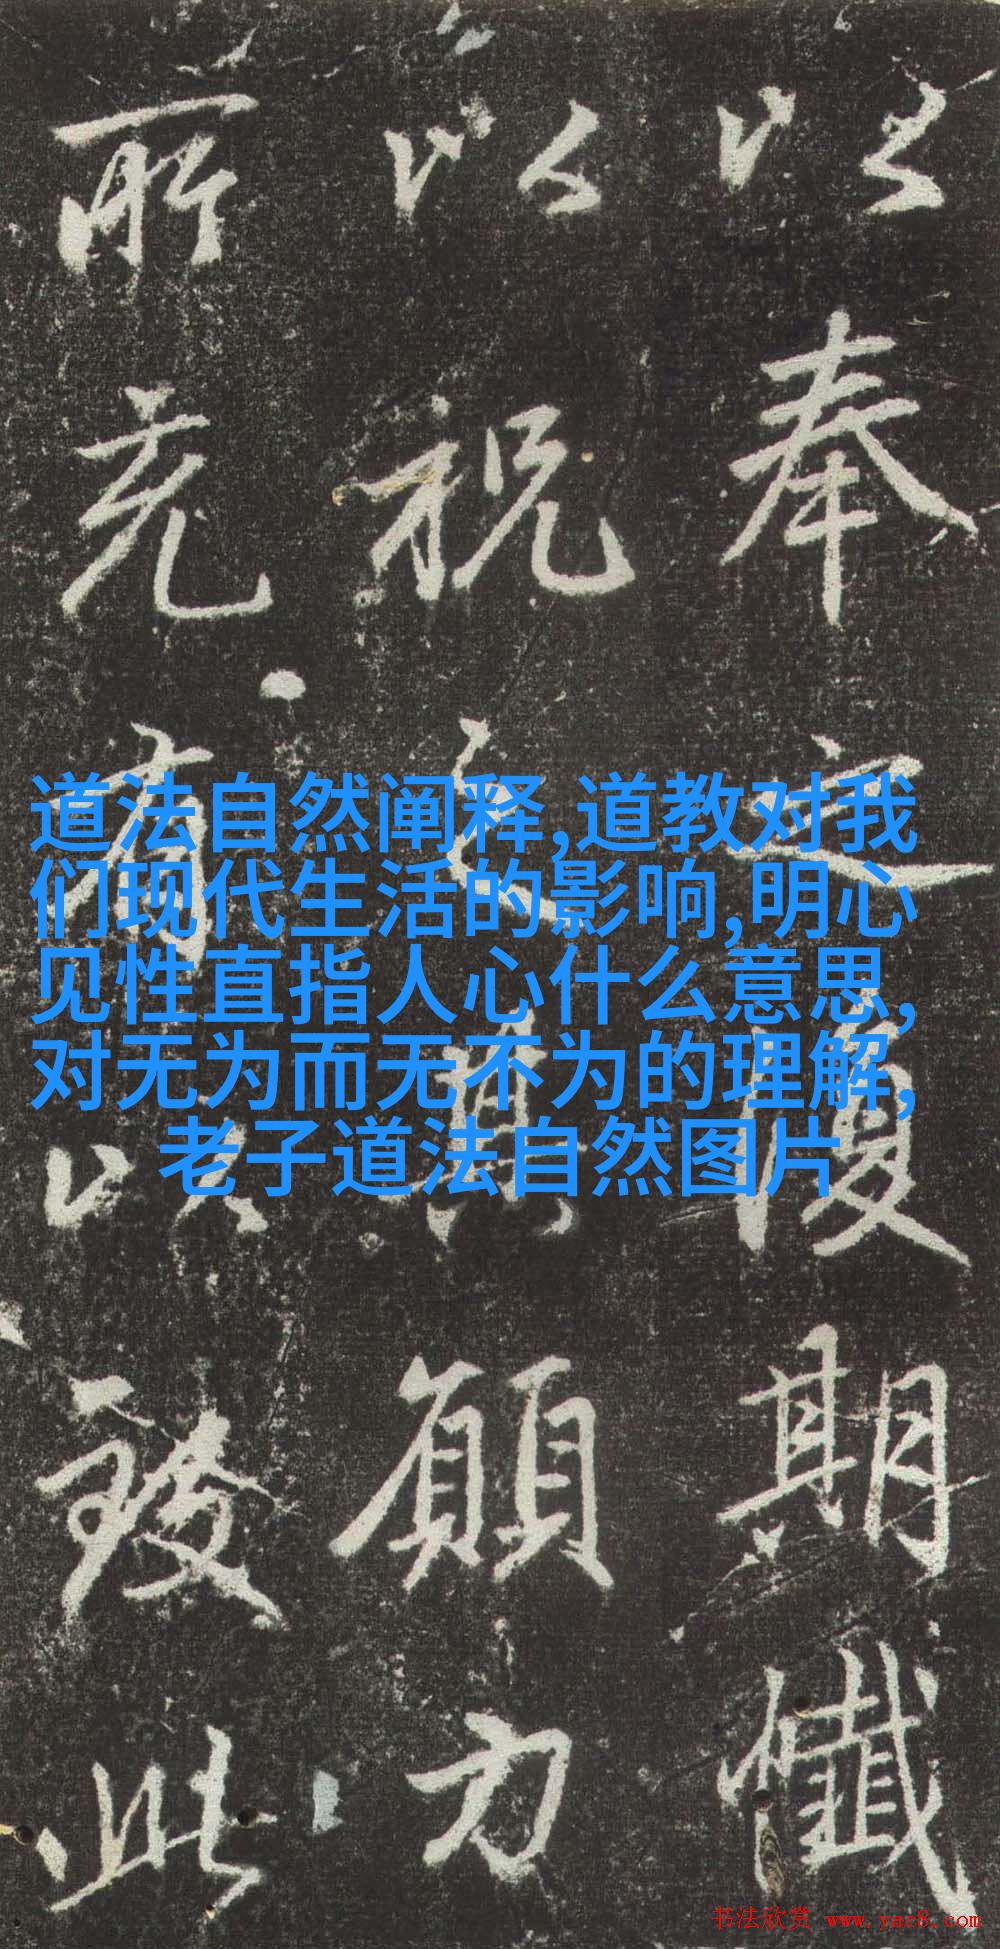 以奉之期懺
以祝其願力
所充有以致此
道法自然阐释,道教对我
们现代生活的影响,明心
见性直指人心什么意思,
对无为而无不为的理解,
老子道法自然图片
书法欣赏 www.yac8.com